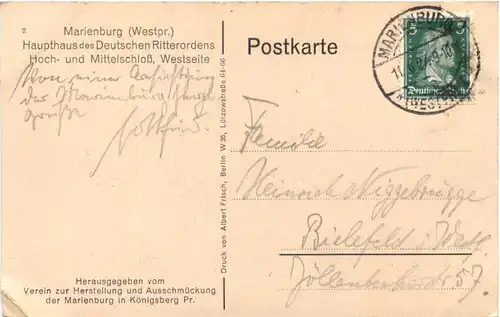 2
Marienburg (Westpr.)
Haupthaus des Deutschen Ritterordens
Hoch- und Mittelschloß, Westseite
Von einer Besichtigung
der Marienburg
Grüße
Postkarte
MARIENBURG
(WESTPR.)
5
5
Deutsches Reich
Familie
Heinrich Niggebrügge
Bielefeld i. Westf.
Jöllenbeckerstr 57.
Druck von Albert Frisch, Berlin W 35, Lützowstraße 64-66
Herausgegeben vom
Verein zur Herstellung und Ausschmückung
der Marienburg in Königsberg Pr.